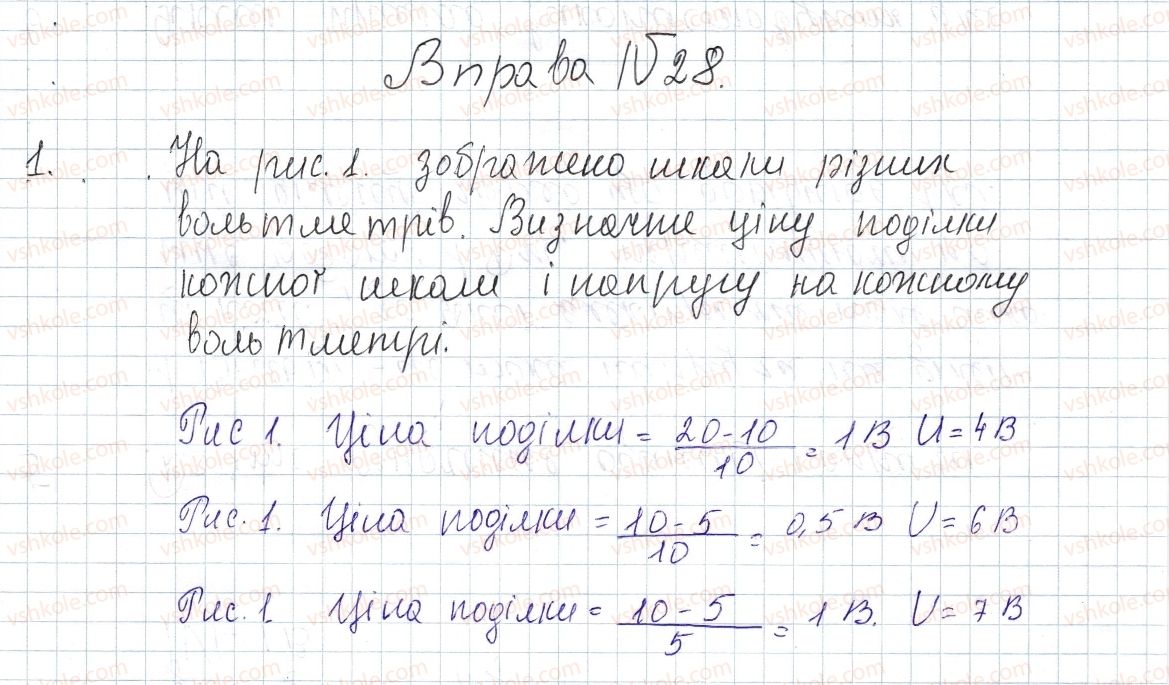 Вправа №28.
1. На рис. 1. зображено шкали різних
вольтметрів. Визначте ціну поділки
кожної шкали і напругу на кожному
вольтметрі.
Рис 1. Ціна поділки = 20-10 / 10 = 1 В U = 4 В
Рис. 1. Ціна поділки = 10-5 / 10 = 0,5 В U = 6 В
Рис. 1 Ціна поділки = 10-5 / 5 = 1 В. U = 7 В
vshkole.com